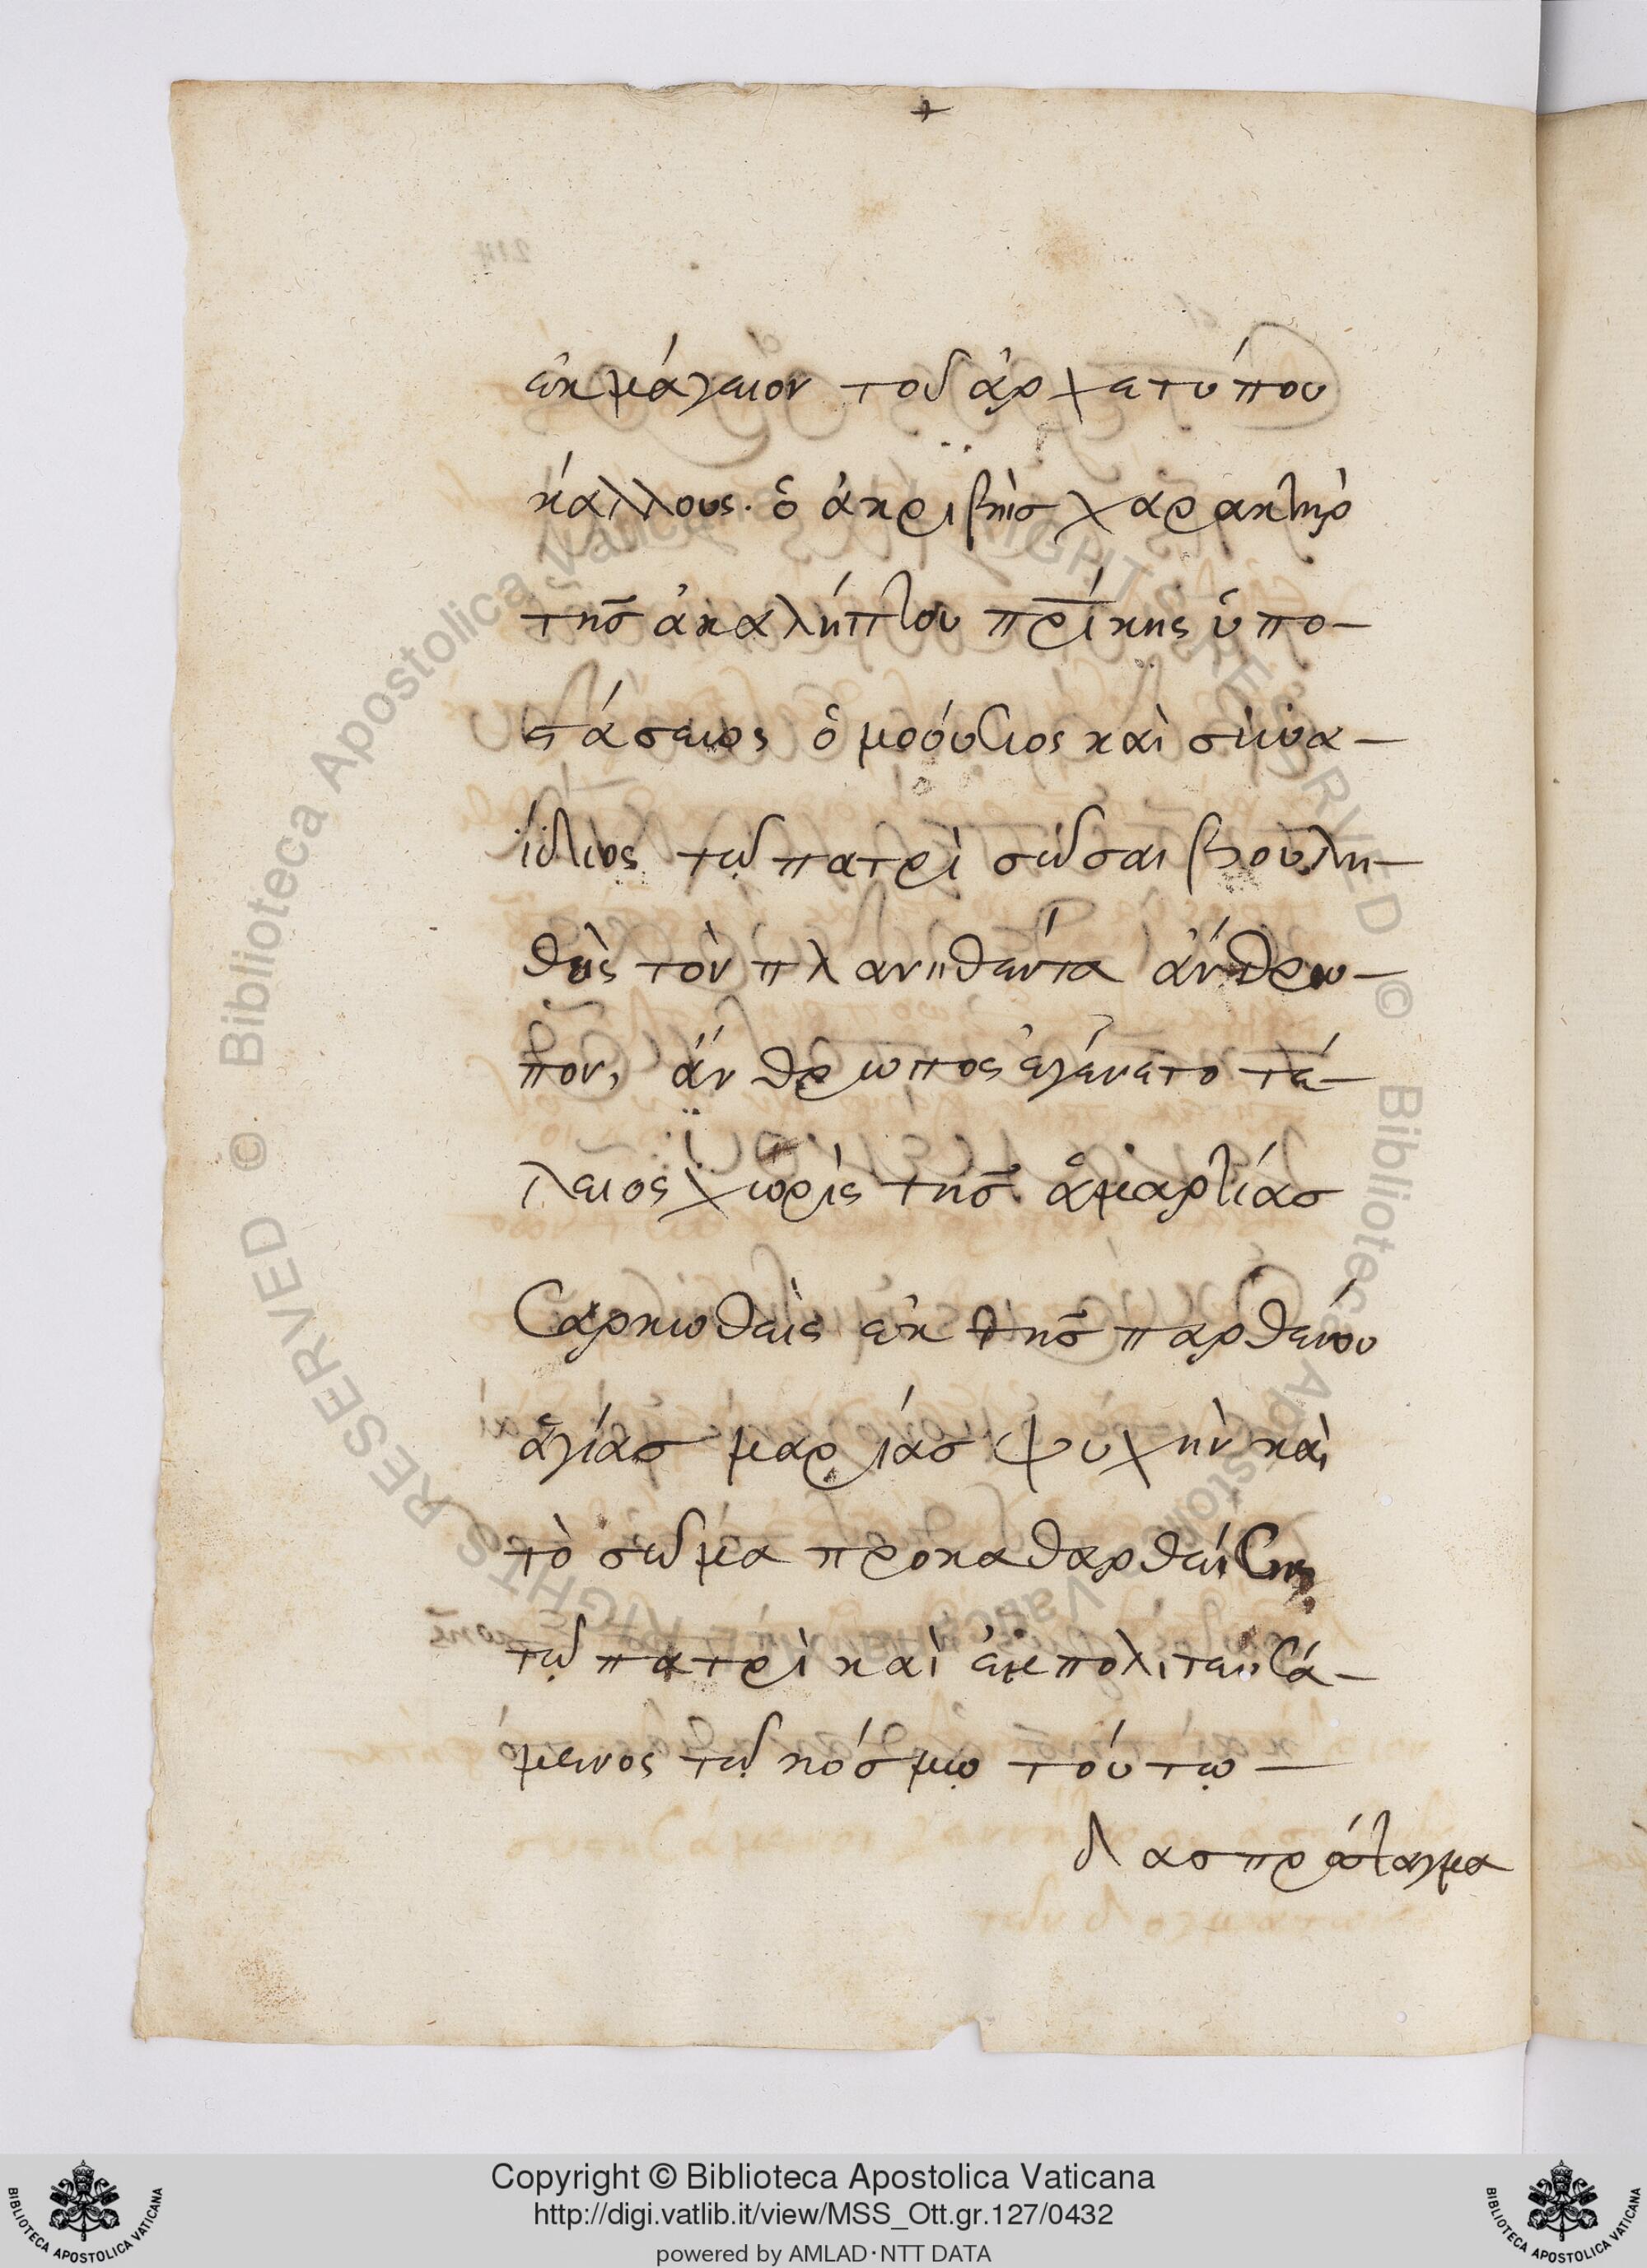 +
ἐκμάγειον τοῦ ἀρχετύπου
κάλλους. ὁ ἀκριβὴς χαρακτὴρ
τῆς ἀκαλήπτου πρικῆς ὑπο-
στάσεως ὁμοούσιος καὶ συνα-
ΐδιος τῷ πατρὶ σῶσαι βουλη-
θεὶς τὸν πλανηθέντα ἄνθρω-
πον, ἄνθρωπος ἐγένετο τέ-
λειος χωρὶς τῆς ἁμαρτίας
Σαρκωθεὶς ἐκ τῆς παρθένου
ἁγίας μαρίας ψυχὴν καὶ
τὸ σῶμα προκαθαρθείσης
τῷ πατρὶ καὶ ἐμπολιτευσά-
μενος τῷ κόσμῳ τούτῳ —
Copyright © Biblioteca Apostolica Vaticana
http://digi.vatlib.it/view/MSS_Ott.gr.127/0432
powered by AMLAD·NTT DATA
BIBLIOTECA APOSTOLICA VATICANA
BIBLIOTECA APOSTOLICA VATICANA
© Biblioteca Apostolica Vaticana ALL RIGHTS RESERVED
© Biblioteca Apostolica Vaticana ALL RIGHTS RESERVED